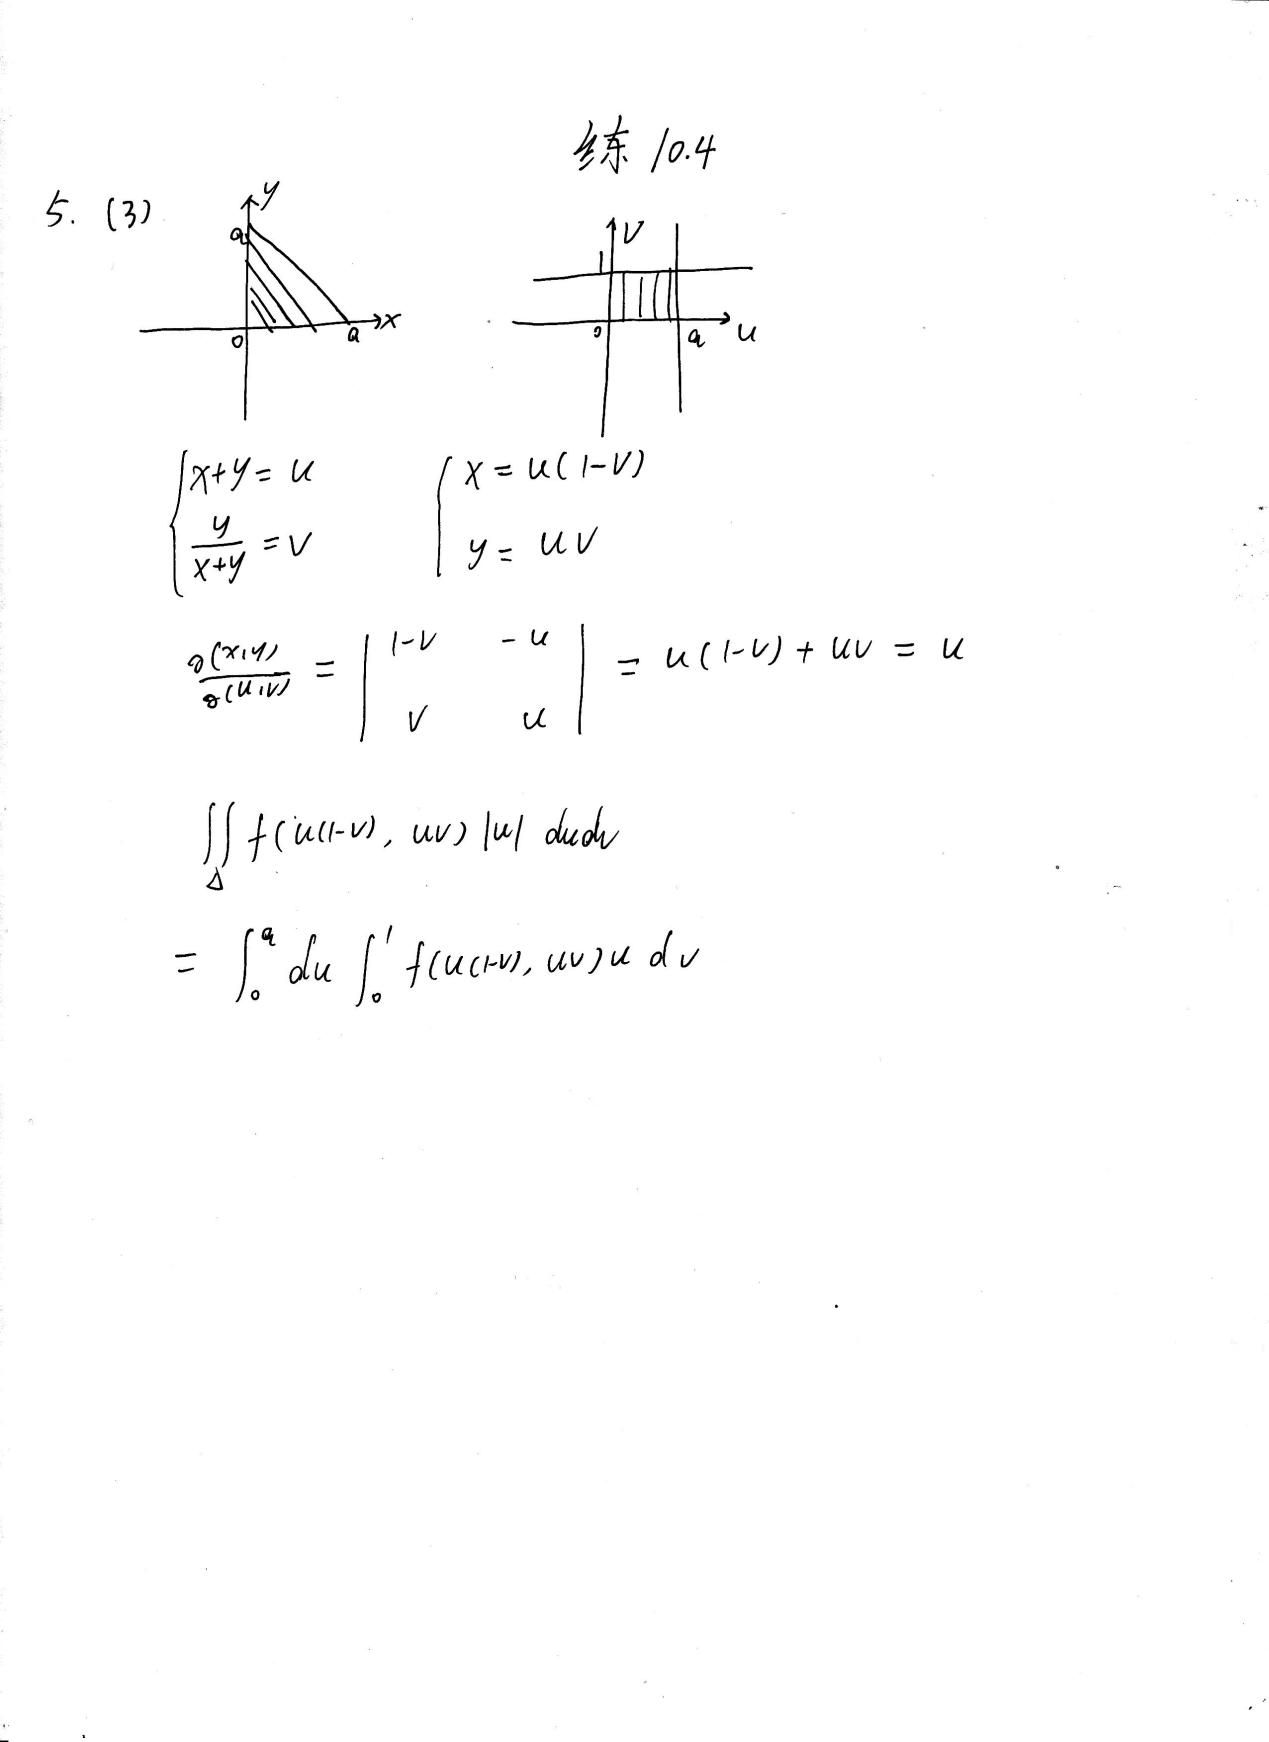 练 10.4
5. (3)
y
a
0
a
x
V
1
0
a
u
{ x+y = u
y/(x+y) = V
{ x = u(1-V)
y = uV
∂(x,y)/∂(u,v) = | 1-V  -u |
| V  u | = u(1-V) + uv = u
∬_Δ f(u(1-v), uv) |u| dudv
= ∫_0^a du ∫_0^1 f(u(1-v), uv) u dv